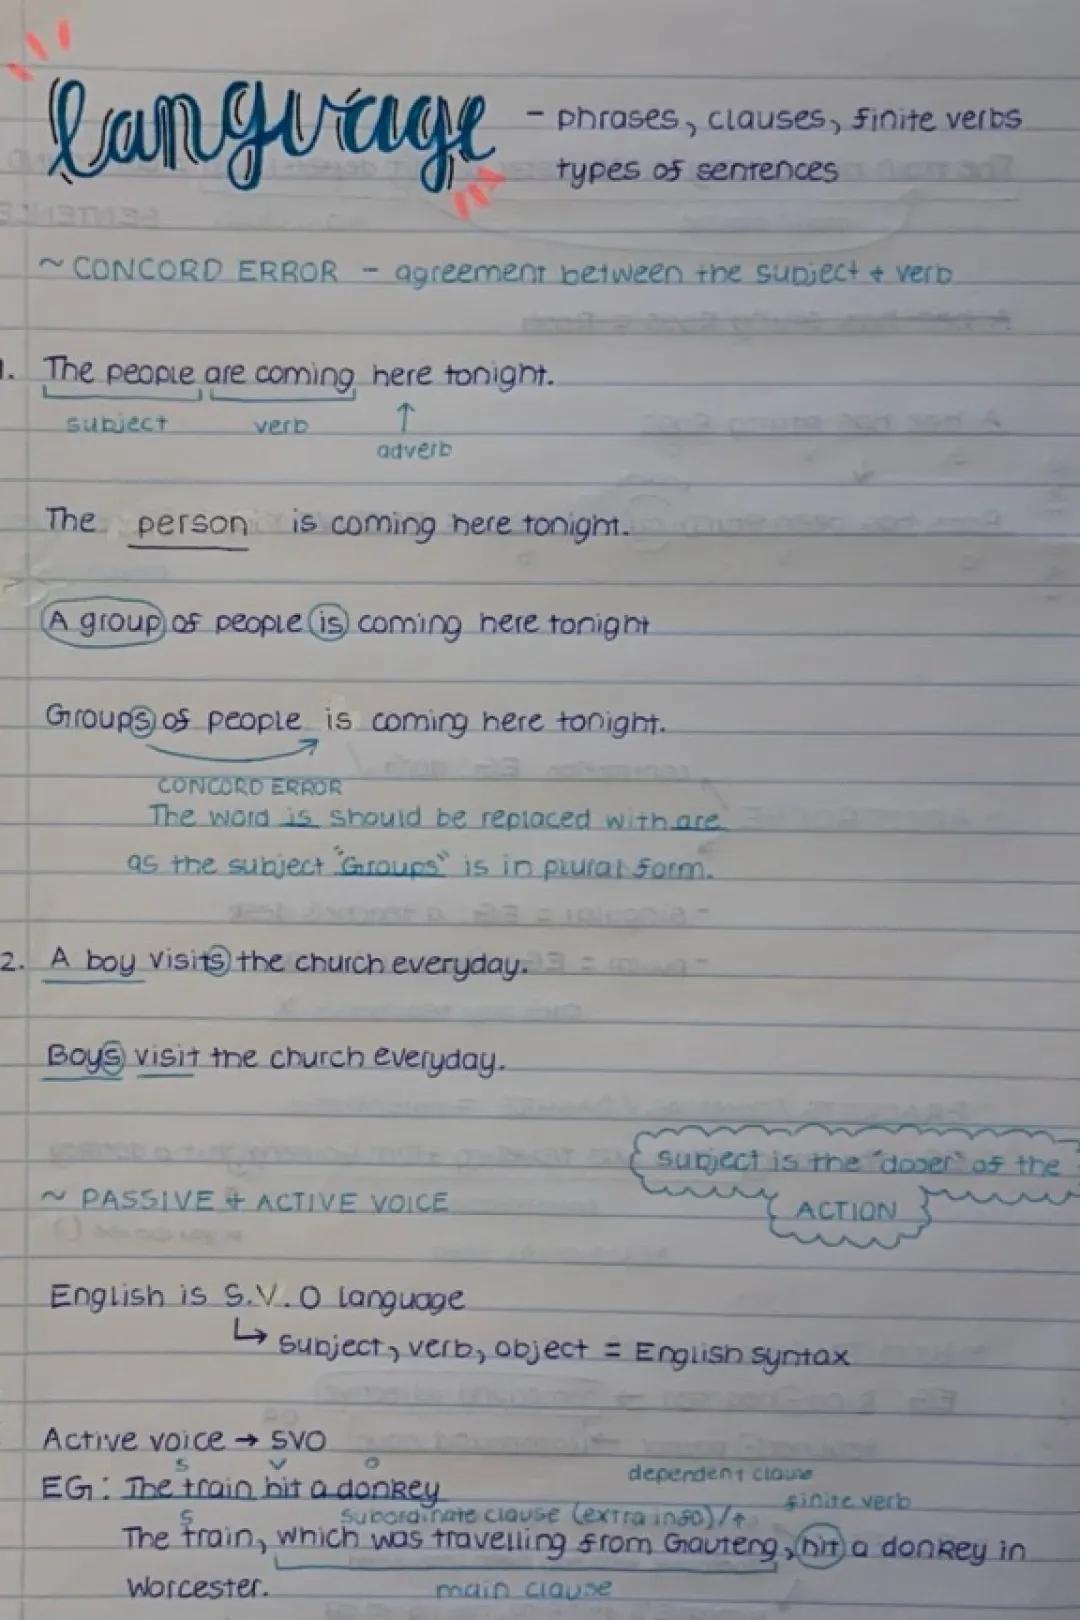 language - phrases, clauses, finite verbs
types of sentences
~ CONCORD ERROR - agreement between the subject + verb
1. The people are coming here tonight.
subject verb ↑
adverb
The person is coming here tonight.
A group of people is coming here tonight
Groups of people is coming here tonight.
CONCORD ERROR
The word is should be replaced with are
as the subject "Groups" is in plural form.
2. A boy visits the church everyday.
Boys visit the church everyday.
subject is the "dooer" of the
ACTION
~ PASSIVE + ACTIVE VOICE
English is S.V.O language
↳ subject, verb, object = English syntax
Active voice → SVO
S V O dependent clause
EG: The train hit a donkey
finite verb
S subordinate clause (extra info) / ↑
The train, which was travelling from Gauteng, hit a donkey in
Worcester. main clause